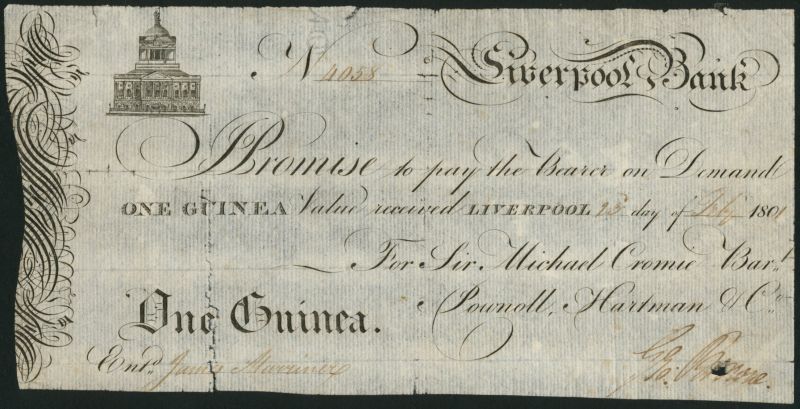 No 4058 Liverpool Bank
I Promise to pay the Bearer on Demand
ONE GUINEA Value received LIVERPOOL 23 day of Feby 1801
For Sir Michael Cromie Bart.
Pownoll, Hartman & Co.
One Guinea.
Entd. James Marriner
Geo. Browne.